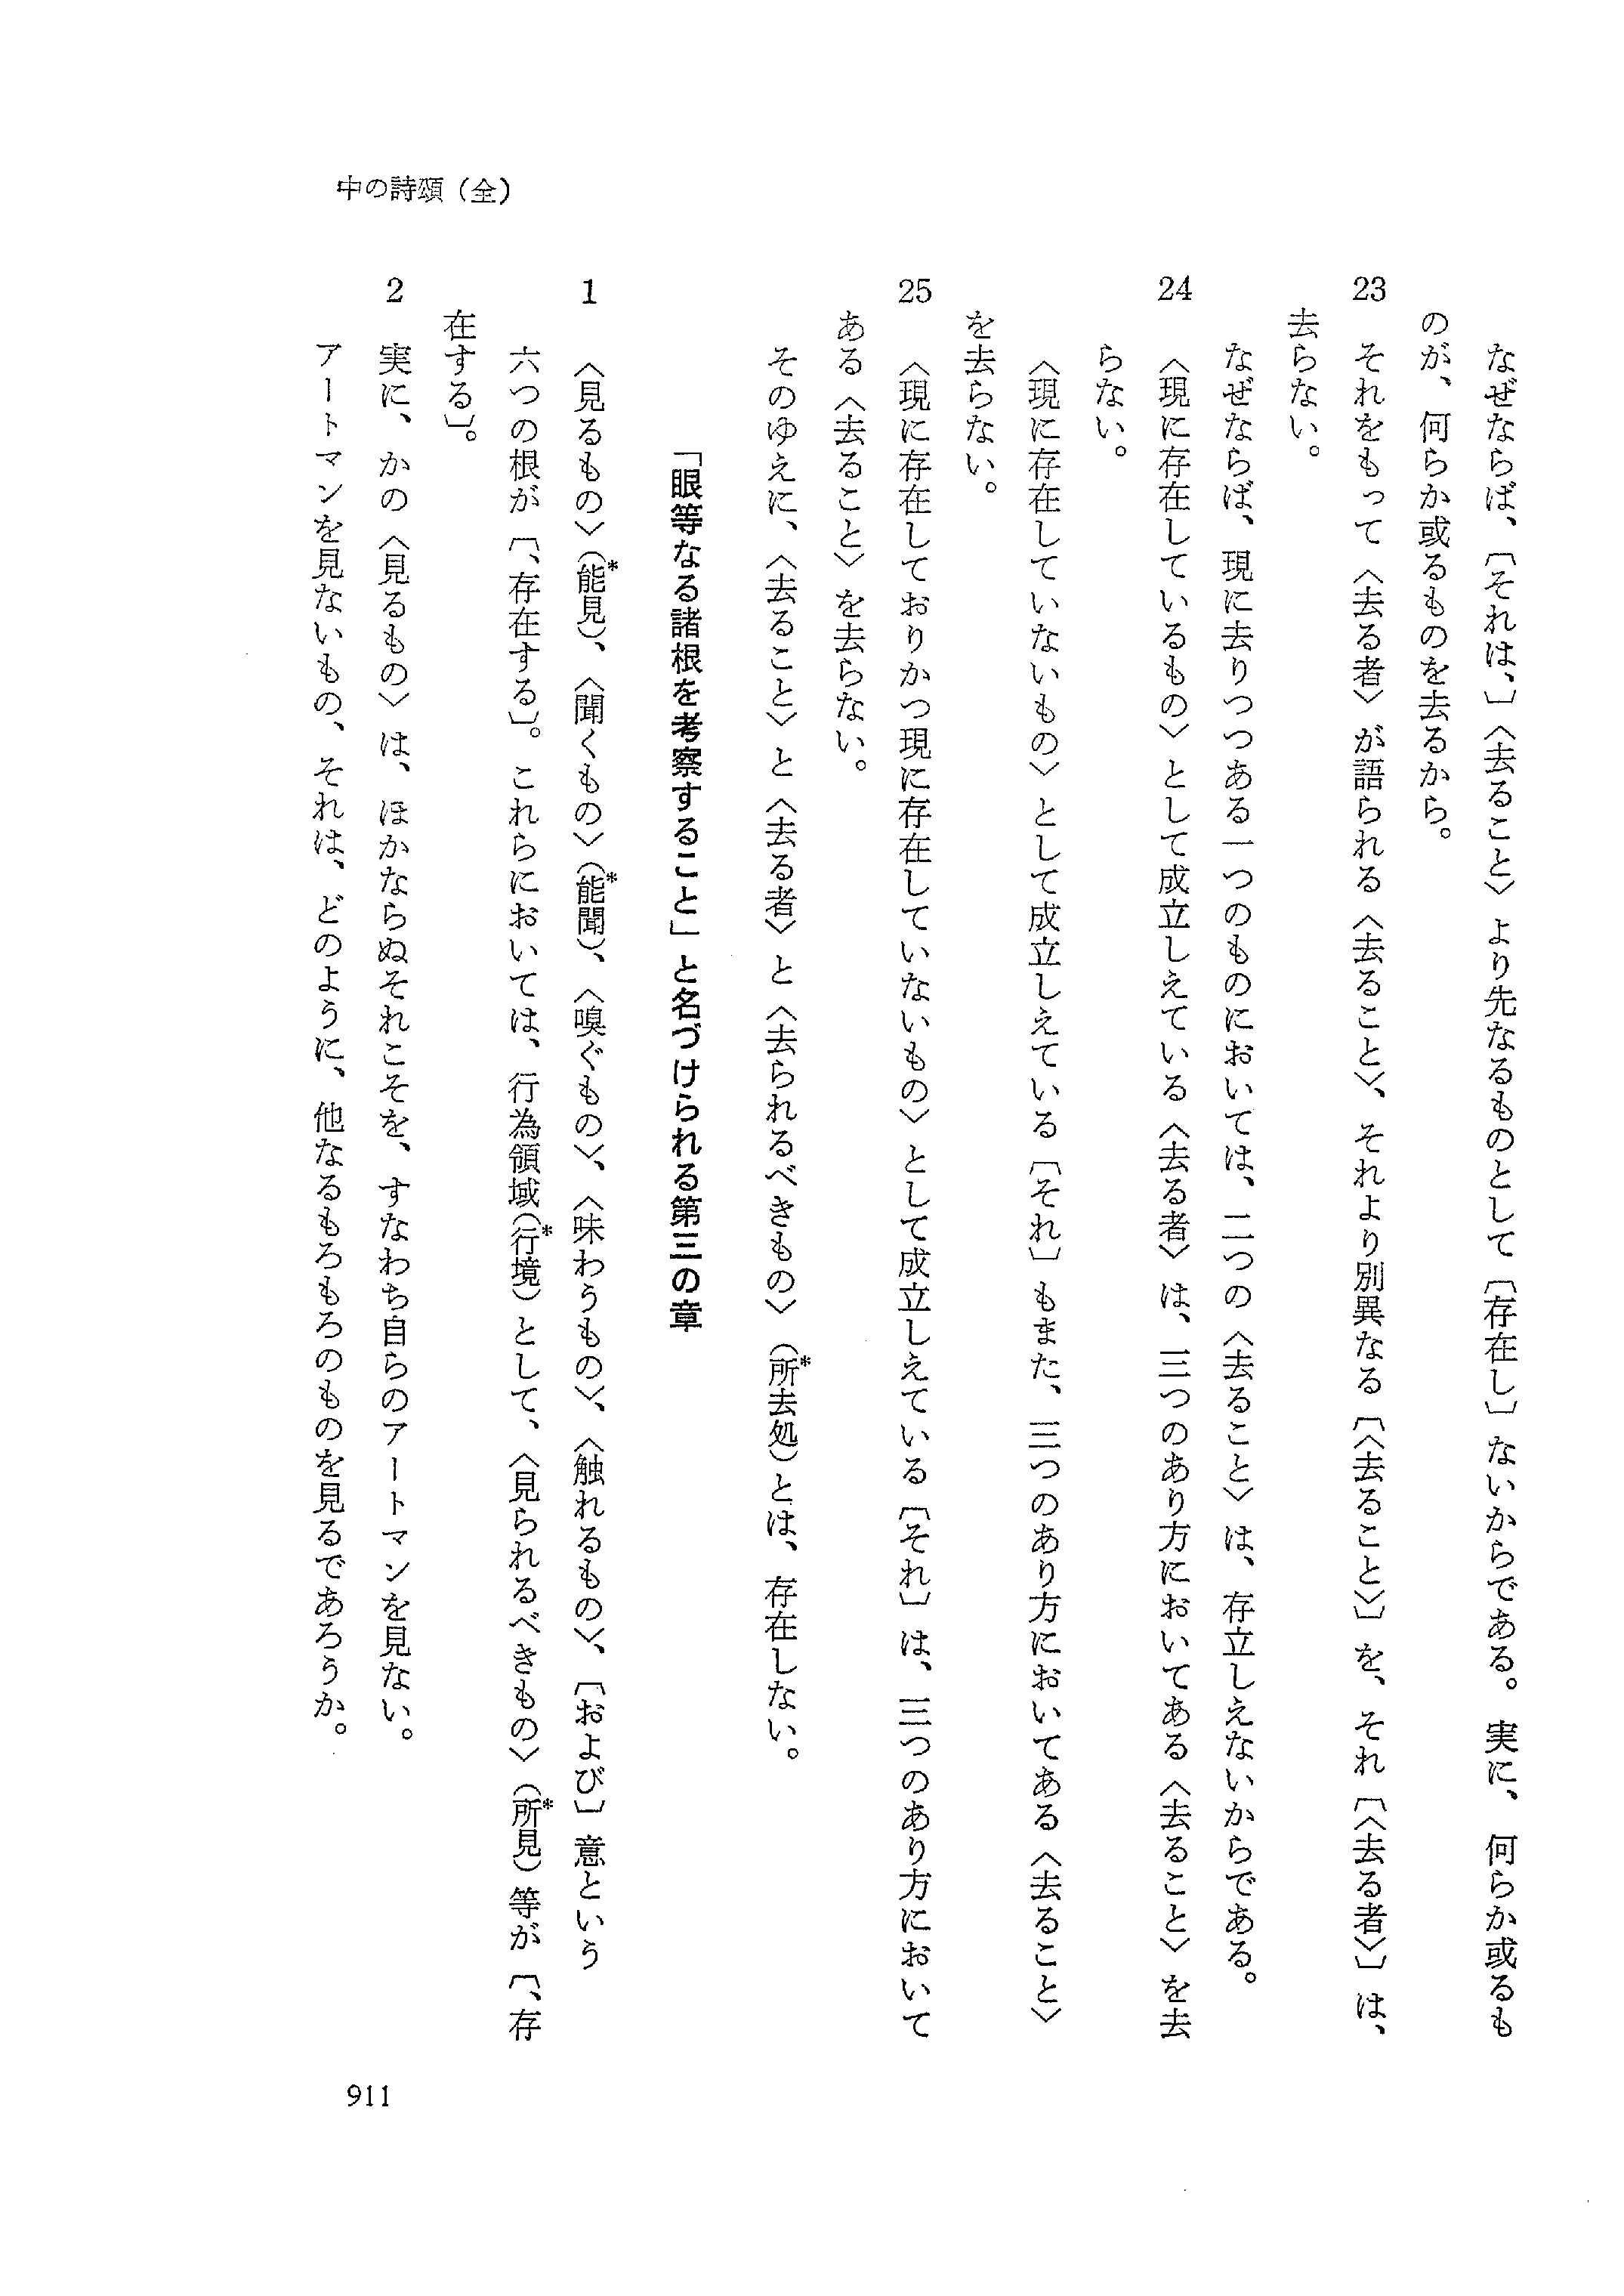 中の詩頌（全）
なぜならば、〔それは、〕〈去ること〉より先なるものとして〔存在し〕ないからである。実に、何らか或るも
のが、何らか或るものを去るから。
23 それをもって〈去る者〉が語られる〈去ること〉、それより別異なる〔〈去ること〉〕を、それ〔〈去る者〉〕は、
去らない。
なぜならば、現に去りつつある一つのものにおいては、二つの〈去ること〉は、存立しえないからである。
24 〈現に存在しているもの〉として成立しえている〈去る者〉は、三つのあり方においてある〈去ること〉を去
らない。
〈現に存在していないもの〉として成立しえている〔それ〕もまた、三つのあり方においてある〈去ること〉
を去らない。
25 〈現に存在しておりかつ現に存在していないもの〉として成立しえている〔それ〕は、三つのあり方において
ある〈去ること〉を去らない。
そのゆえに、〈去ること〉と〈去る者〉と〈去られるべきもの〉（*所去処）とは、存在しない。
「眼等なる諸根を考察すること」と名づけられる第三の章
1 〈見るもの〉（*能見）、〈聞くもの〉（*能聞）、〈嗅ぐもの〉、〈味わうもの〉、〈触れるもの〉、〔および〕意という
六つの根が〔、存在する〕。これらにおいては、行為領域（*行境）として、〈見られるべきもの〉（*所見）等が〔、存
在する〕。
2 実に、かの〈見るもの〉は、ほかならぬそれこそを、すなわち自らのアートマンを見ない。
アートマンを見ないもの、それは、どのように、他なるもろもろのものを見るであろうか。
911